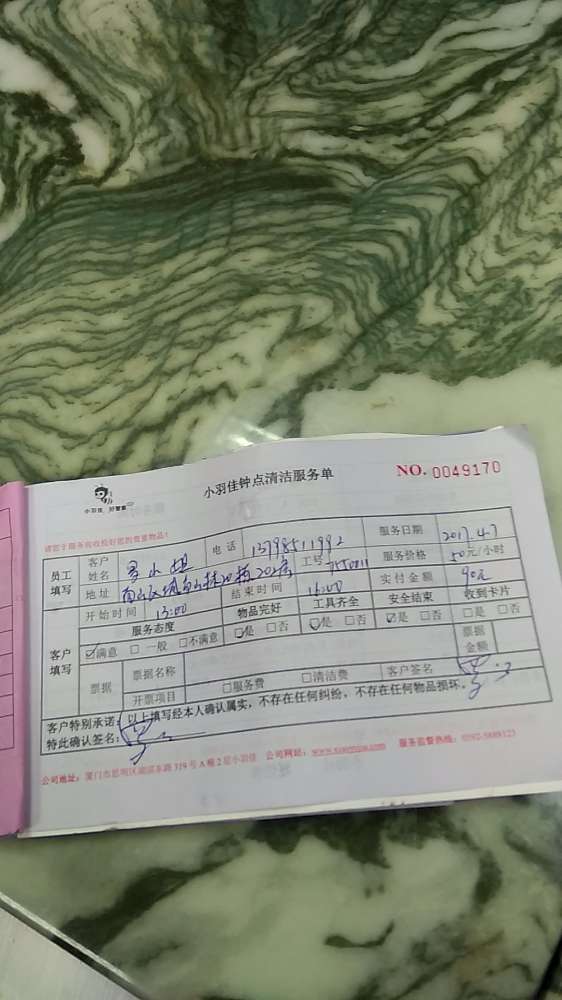 小羽佳钟点清洁服务单 NO. 0049170
小羽佳 好管家
员工填写 客户姓名 罗小姐 电话 13798511992 服务日期 2017.4.7
地址 工号 服务价格 50元/小时
开始时间 13:00 结束时间 16:00 实付金额 90元
客户填写 服务态度 物品完好 工具齐全 安全结束 收到卡片
☑满意 □一般 □不满意 ☑是 □否 ☑是 □否 ☑是 □否 □是 □否
票据 票据名称 票据金额
开票项目 □服务费 □清洁费 客户签名
客户特别承诺：以上填写经本人确认属实，不存在任何纠纷，不存在任何物品损坏。
特此确认签名：
公司地址：厦门市思明区湖滨东路319号A幢2层小羽佳 公司网站： 服务监督热线：0592-5889123